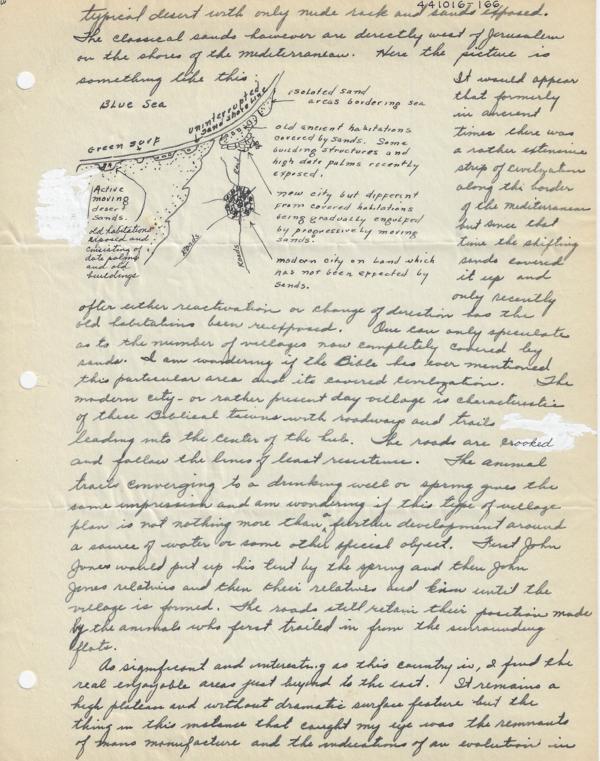 441016-166
typical desert with only nude rock and sands exposed.
The classical sands however are directly west of Jerusalem
on the shores of the Mediterranean. Here the picture is
something like this:
Blue Sea
Green surf
uninterrupted
sand shore line
isolated sand
areas bordering sea
old ancient habitations
covered by sands. Some
building structures and
high date palms recently
exposed.
now city but different
from covered habitations
being gradually engulfed
by progressively moving
sands.
modern city on land which
has not been effected by
sands.
Active
moving
desert
sands.
old habitations
exposed and
consisting of
date palms
and old
buildings
Roads
Roads
Road
It would appear
that formerly
in ancient
times there was
a rather extensive
strip of civilyzation
along the border
of the Mediterranean
but since that
time the shifting
sands covered
it up and
only recently
after either reactivation or change of direction has the
old habitations been reexposed. One can only speculate
as to the number of villages now completely covered by
sands. I am wondering if the Bible has ever mentioned
this particular area and its covered civilyzation. The
modern city - or rather present day village is characteristic
of these Biblical towns with roadways and trails
leading into the center of the hub. The roads are crooked
and follow the lines of least resistence. The animal
trails converging to a drinking well or spring gives the
same impression and am wondering if this type of village
plan is not nothing more than a further development around
a source of water or some other special object. First John
Jones would put up his tent by the spring and then John
Jones relatives and then their relatives and kin until the
village is formed. The roads still retain their position made
by the animals who first trailed in from the surrounding
flats.
As significant and interesting as this country is, I find the
real enjoyable areas just beyond to the east. It remains a
high plateau and without dramatic surface feature but the
thing in this instance that caught my eye was the remnants
of mans manufacture and the indications of an evolution in